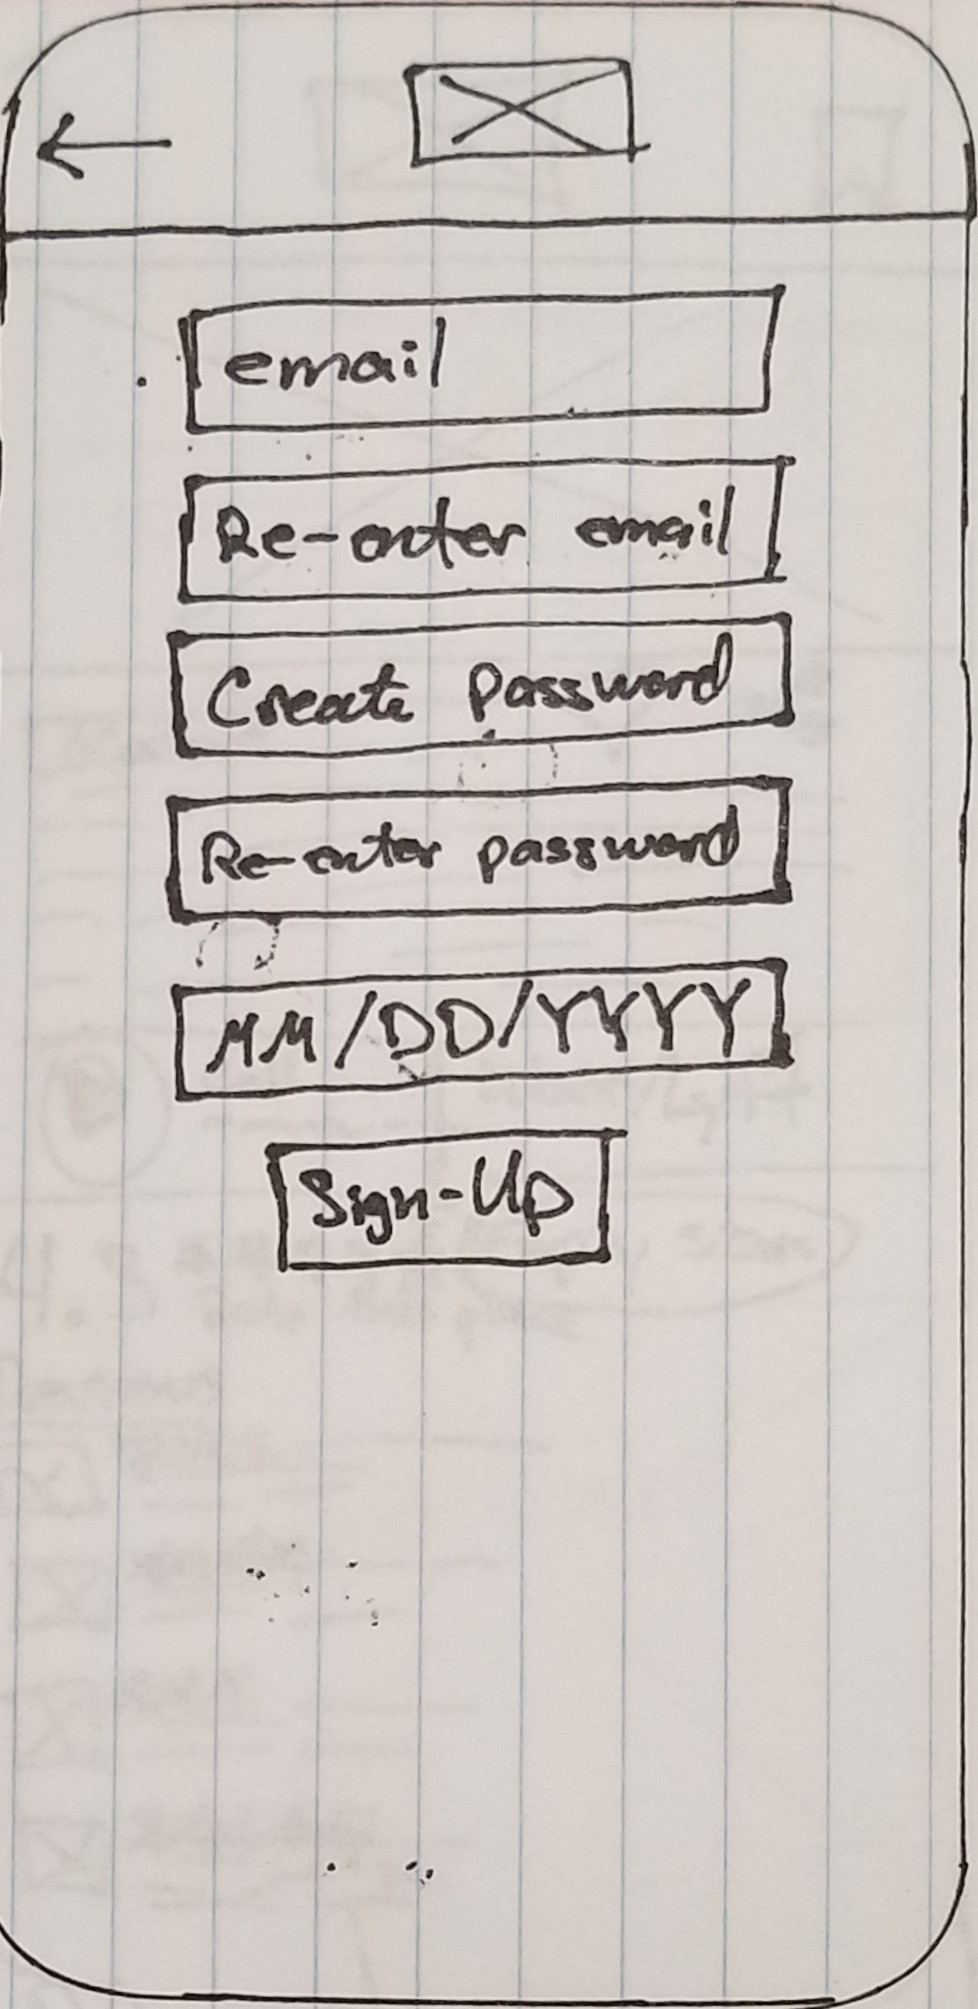 email
Re-enter email
Create password
Re-enter password
MM/DD/YYYY
Sign-Up